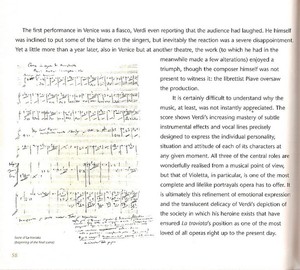 The first performance in Venice was a fiasco, Verdi even reporting that the audience had laughed. He himself
was inclined to put some of the blame on the singers, but inevitably the reaction was a severe disappointment.
Yet a little more than a year later, also in Venice but at another theatre, the work (to which he had in the
meanwhile made a few alterations) enjoyed a
triumph, though the composer himself was not
present to witness it: the librettist Piave oversaw
the production.
It is certainly difficult to understand why the
music, at least, was not instantly appreciated. The
score shows Verdi's increasing mastery of subtle
instrumental effects and vocal lines precisely
designed to express the individual personality,
situation and attitude of each of its characters at
any given moment. All three of the central roles are
wonderfully realised from a musical point of view,
but that of Violetta, in particular, is one of the most
complete and lifelike portrayals opera has to offer. It
is ultimately this refinement of emotional expression
and the translucent delicacy of Verdi's depiction of
the society in which his heroine exists that have
ensured La traviata's position as one of the most
loved of all operas right up to the present day.
(beginning of the final scene)